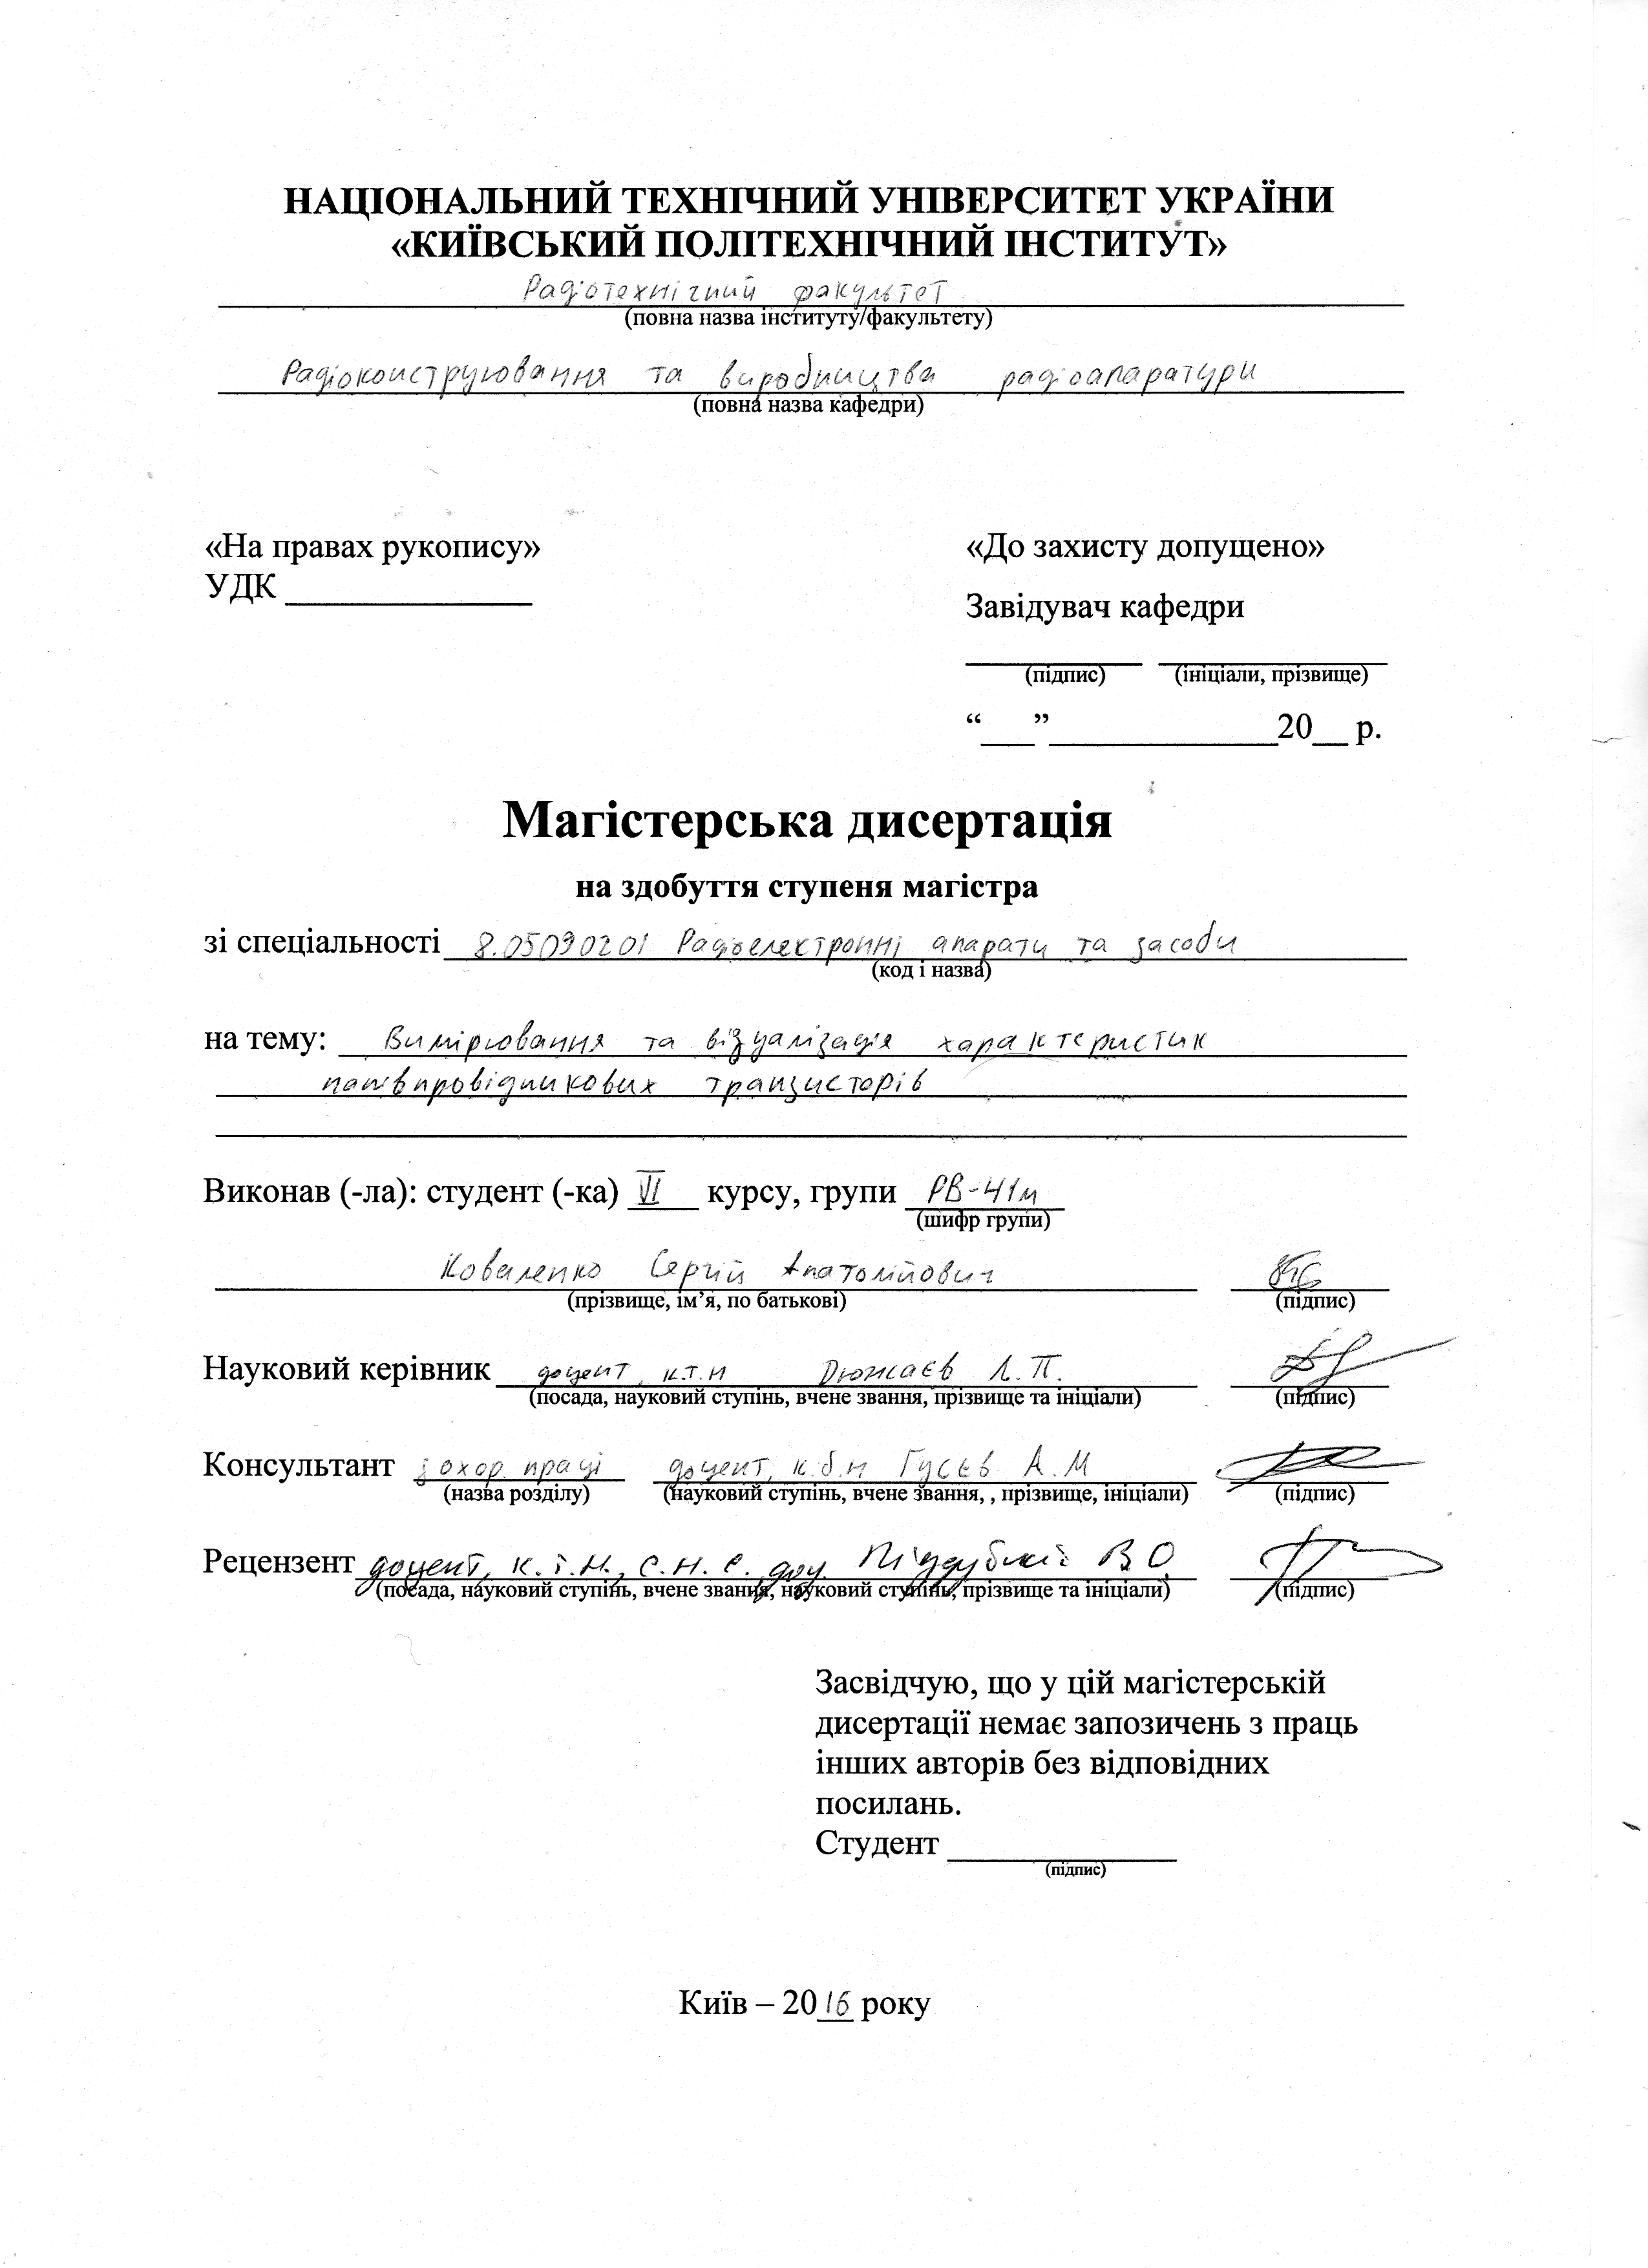 НАЦІОНАЛЬНИЙ ТЕХНІЧНИЙ УНІВЕРСИТЕТ УКРАЇНИ
«КИЇВСЬКИЙ ПОЛІТЕХНІЧНИЙ ІНСТИТУТ»
Радіотехнічний факультет
(повна назва інституту/факультету)
Радіоконструювання та виробництва радіоапаратури
(повна назва кафедри)
«На правах рукопису» «До захисту допущено»
УДК ______________
Завідувач кафедри
(підпис) (ініціали, прізвище)
“___”_____________20__ р.
Магістерська дисертація
на здобуття ступеня магістра
зі спеціальності 8.05090201 Радіоелектронні апарати та засоби
(код і назва)
на тему: Вимірювання та візуалізація характеристик
напівпровідникових транзисторів
Виконав (-ла): студент (-ка) VI курсу, групи РВ-41м
(шифр групи)
Коваленко Сергій Анатолійович
(прізвище, ім’я, по батькові) (підпис)
Науковий керівник доцент, к.т.н Дюжаєв Л.П.
(посада, науковий ступінь, вчене звання, прізвище та ініціали) (підпис)
Консультант з охор. праці доцент, к.б.н Гусєв А.М
(назва розділу) (науковий ступінь, вчене звання, , прізвище, ініціали) (підпис)
Рецензент доцент, к.т.н., с.н.с. Піддубний В О
(посада, науковий ступінь, вчене звання, науковий ступінь, прізвище та ініціали) (підпис)
Засвідчую, що у цій магістерській
дисертації немає запозичень з праць
інших авторів без відповідних
посилань.
Студент _____________
(підпис)
Київ – 2016 року